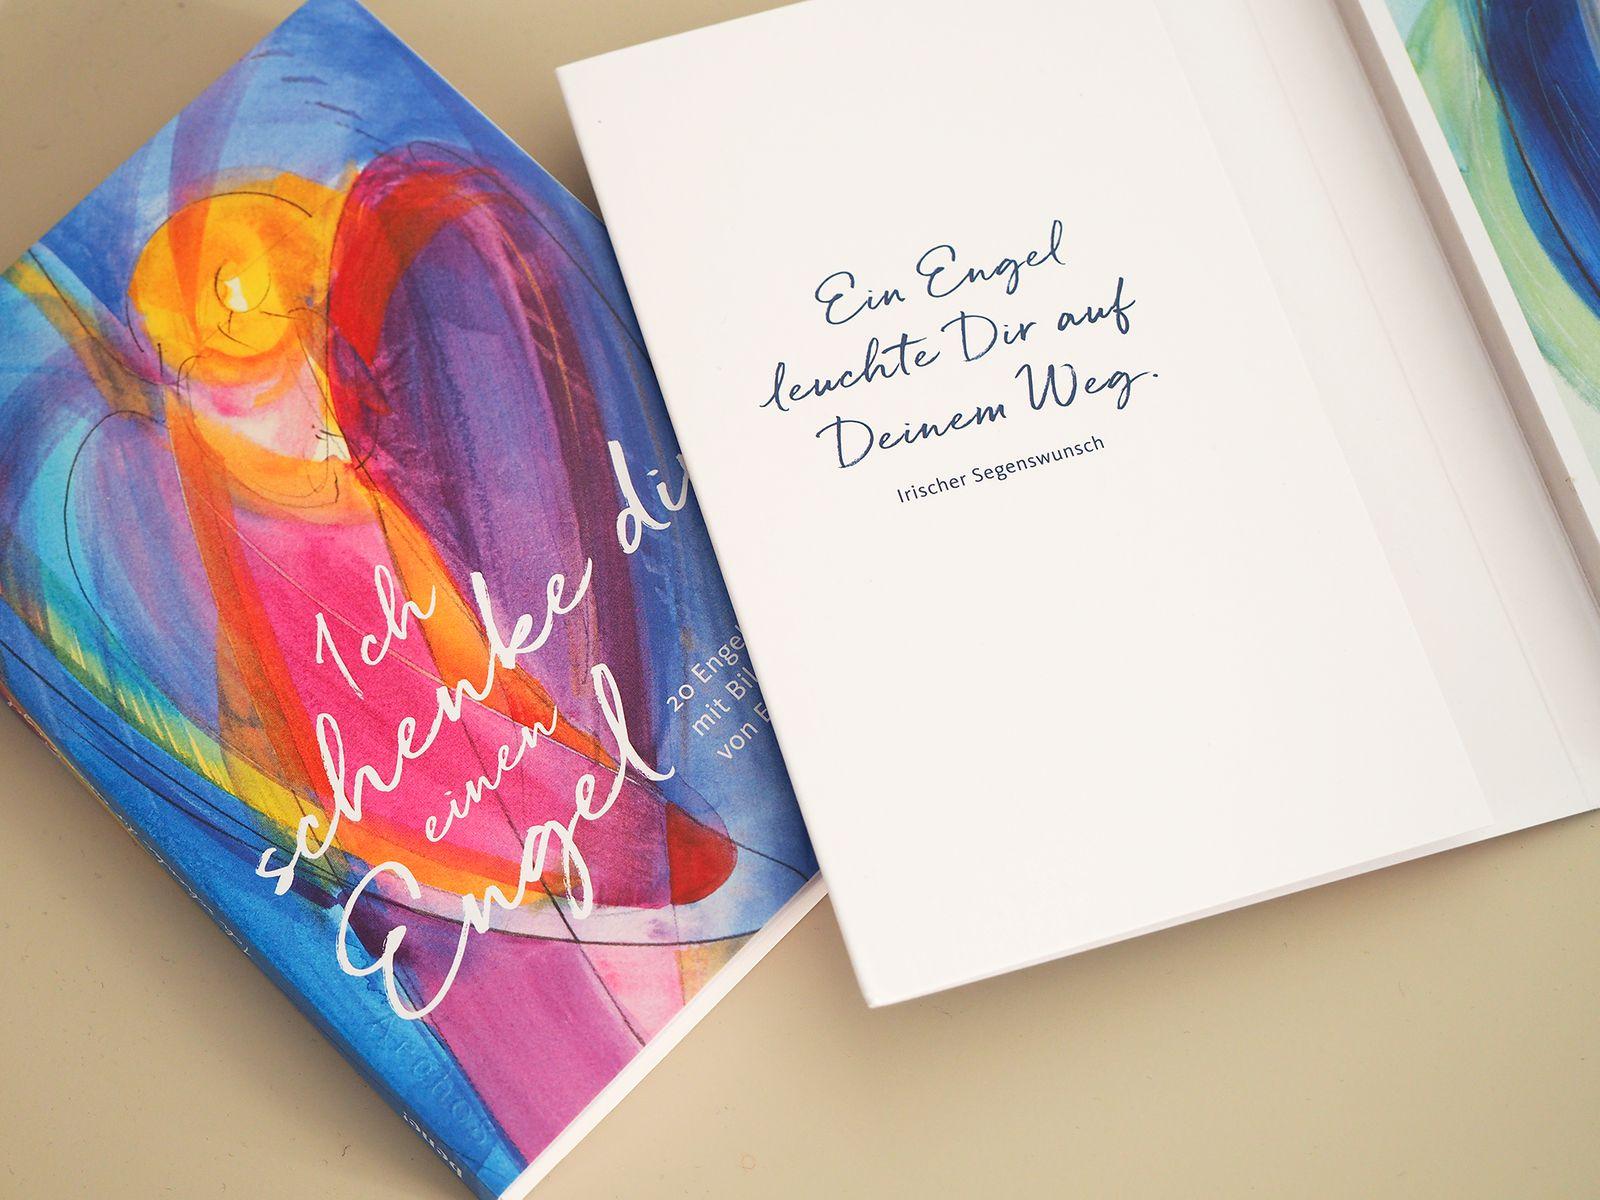 Ich
schenke dir
einen
Engel
20 Engel
mit
von
Ein Engel
leuchte Dir auf
Deinem Weg.
Irischer Segenswunsch
bene!